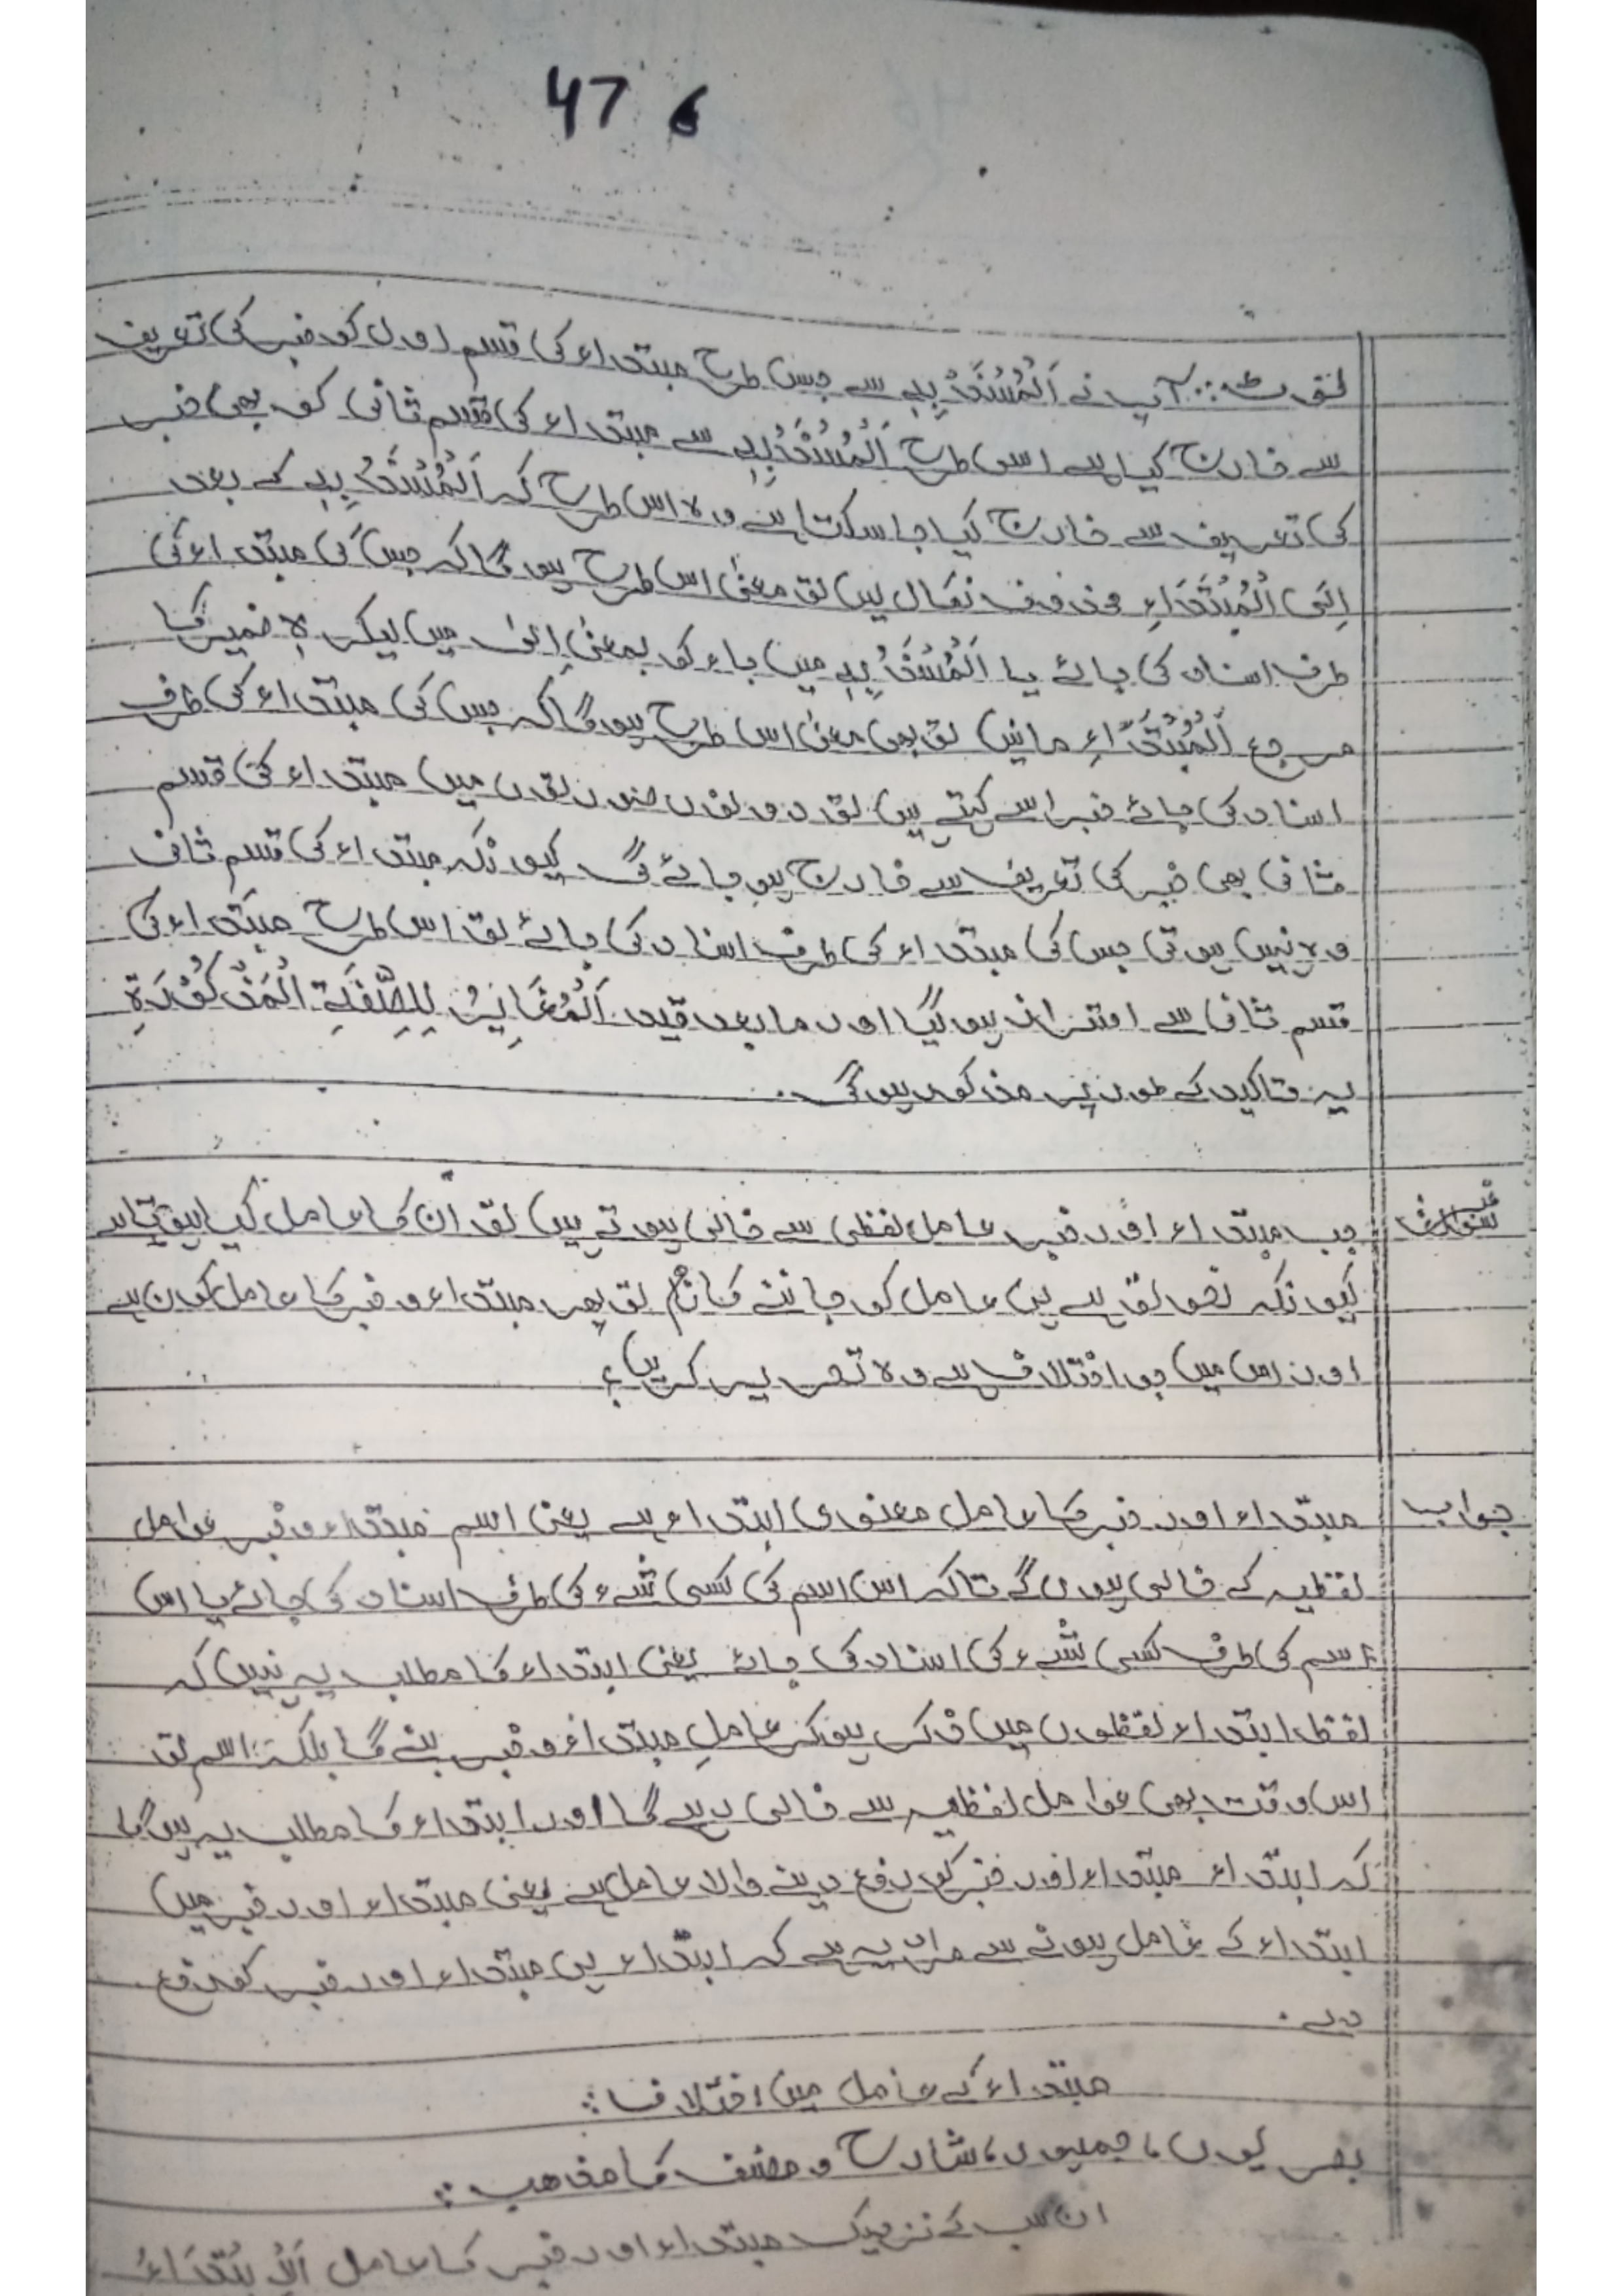 47 6
نوٹ:: آپ نے اَلْمُسْنَدُ بِہٖ سے جس طرح مبتداء کی قسم اول کو خبر کی تعریف
سے خارج کیا ہے اسی طرح اَلْمُسْنَدُ بِہٖ سے مبتداء کی قسم ثانی کو بھی خبر
کی تعریف سے خارج کیا جا سکتا ہے وہ اس طرح کہ اَلْمُسْنَدُ بِہٖ کے بعد
اِلَی الْمُبْتَدَاءِ محذوف نکال لیں تو معنیٰ اس طرح ہو گا کہ جس کی مبتداء کی
طرف اسناد کی جائے یا اَلْمُسْنَدُ بِہٖ میں باء کو بمعنیٰ اِلیٰ میں لیکر ہٖ ضمیر کا
مرجع اَلْمُبْتَدَاءِ مانیں تو بھی معنیٰ اس طرح ہو گا کہ جس کی مبتداء کی طرف
اسناد کی جائے خبر اسے کہتے ہیں تو دونوں صورتوں میں مبتداء کی قسم
ثانی بھی خبر کی تعریف سے خارج ہو جائے گی کیونکہ مبتداء کی قسم ثانی
وہ نہیں ہوتی جس کی مبتداء کی طرف اسناد کی جائے تو اس طرح مبتداء کی
قسم ثانی سے احتراز ہو گیا اور مابعد قید اَلْمُغَایِرُ لِلصِّفَۃِ الْمَذْکُوْرَۃِ
یہ تاکید کے طور پر مذکور ہو گی۔
سوال جب مبتداء اور خبر عامل لفظی سے خالی ہوتے ہیں تو ان کا عامل کیا ہوتا ہے
کیونکہ نحو تو ہے ہی عامل کو جاننے کا نام تو پھر مبتداء و خبر کا عامل کون ہے
اور اس میں جو اختلاف ہے وہ تحریر کریں؟
جواب مبتداء اور خبر کا عامل معنوی ابتداء ہے یعنی اسم مبتداء و خبر عوامل
لفظیہ کے خالی ہوں گے تاکہ اس اسم کی کسی شیء کی طرف اسناد کی جائے یا اس
اسم کی طرف کسی شیء کی اسناد کی جائے یعنی ابتداء کا مطلب یہ نہیں کہ
لفظ ابتداء لفظوں میں ذکر ہو کر عاملِ مبتداء و خبر بنے گا بلکہ اسم تو
اس وقت بھی عوامل لفظیہ سے خالی رہے گا اور ابتداء کا مطلب یہ ہو گا
کہ ابتداء مبتداء اور خبر کو رفع دینے والا عامل ہے یعنی مبتداء اور خبر میں
ابتداء کے عامل ہونے سے مراد یہ ہے کہ ابتداء ہی مبتداء اور خبر کو رفع
دے۔
مبتداء کے عامل میں اختلاف::
بصریوں، جمہور، شارح و مصنف کا مذھب::
ان سب کے نزدیک مبتداء اور خبر کا عامل اَلْاِبْتِدَاءُ